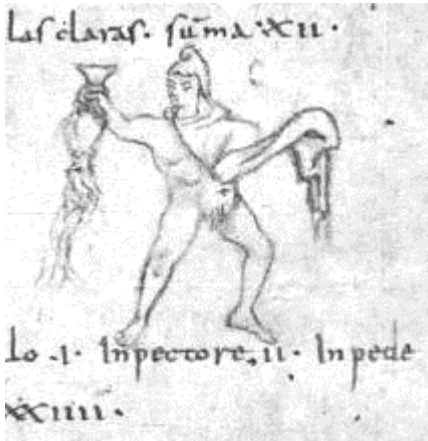 las claras. sūma·XXII·
lo ·I· Inpectore, II· Inpede
XXIIII·